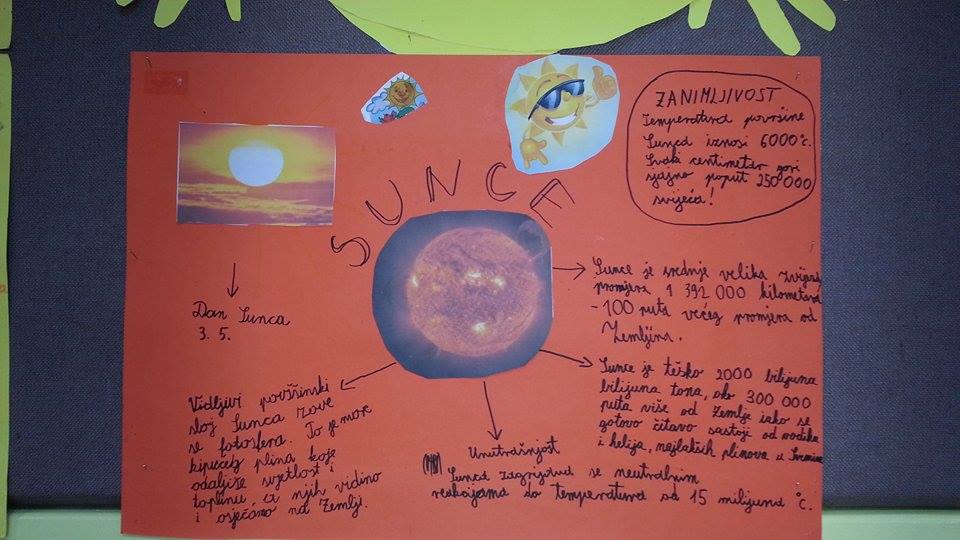 SUNCE
ZANIMLJIVOST
Temperatura površine
Sunca iznosi 6000°c.
Svaki centimetar gori
sjajno poput 250 000
svijeća!
Dan Sunca
3. 5.
Sunce je srednje velika zvijezda
promjera 1 392 000 kilometara
- 100 puta većeg promjera od
Zemljina.
Sunce je teško 2000 bilijuna
bilijuna tona, oko 300 000
puta više od Zemlje iako se
gotovo čitavo sastoji od vodika
i helija, najlakših plinova u Svemiru
Vidljivi površinski
sloj Sunca zove
se fotosfera. To je more
kipućeg plina koje
odašilje svjetlost i
toplinu, a njih vidimo
i osjećamo na Zemlji.
Unutrašnjost
Sunca zagrijava se neutralnim
reakcijama do temperatura od 15 milijuna °c.